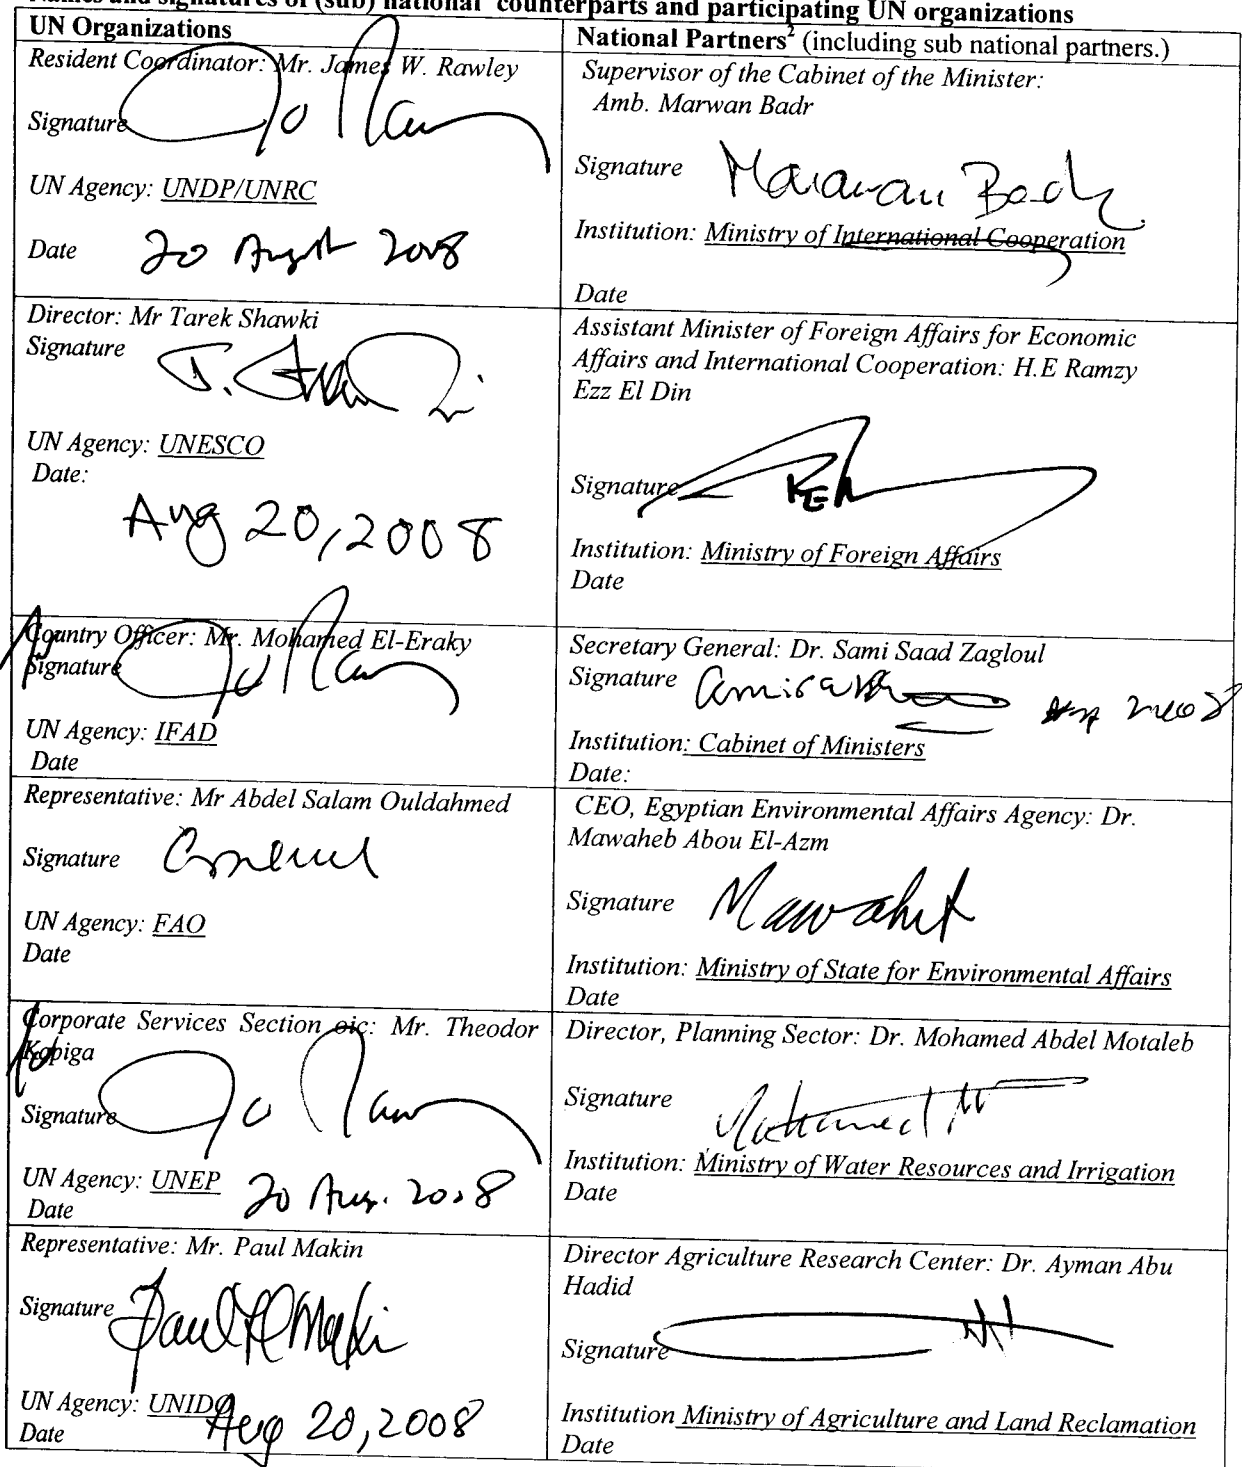 Names and signatures of (sub) national counterparts and participating UN organizations
UN Organizations
Resident Coordinator: Mr. James W. Rawley
Signature
UN Agency: UNDP/UNRC
Date 20 August 2008
National Partners² (including sub national partners.)
Supervisor of the Cabinet of the Minister:
Amb. Marwan Badr
Signature Marawan Badr
Institution: Ministry of International Cooperation
Date
Director: Mr Tarek Shawki
Signature
UN Agency: UNESCO
Date:
Aug 20, 2008
Assistant Minister of Foreign Affairs for Economic
Affairs and International Cooperation: H.E Ramzy
Ezz El Din
Signature
Institution: Ministry of Foreign Affairs
Date
Country Officer: Mr. Mohamed El-Eraky
Signature
UN Agency: IFAD
Date
Secretary General: Dr. Sami Saad Zagloul
Signature
Institution: Cabinet of Ministers
Date:
Representative: Mr Abdel Salam Ouldahmed
Signature
UN Agency: FAO
Date
CEO, Egyptian Environmental Affairs Agency: Dr.
Mawaheb Abou El-Azm
Signature Mawaheb
Institution: Ministry of State for Environmental Affairs
Date
Corporate Services Section oic: Mr. Theodor
Kapiga
Signature
UN Agency: UNEP
Date 20 Aug. 2008
Director, Planning Sector: Dr. Mohamed Abdel Motaleb
Signature
Institution: Ministry of Water Resources and Irrigation
Date
Representative: Mr. Paul Makin
Signature
UN Agency: UNIDO
Date Aug 20, 2008
Director Agriculture Research Center: Dr. Ayman Abu
Hadid
Signature
Institution Ministry of Agriculture and Land Reclamation
Date